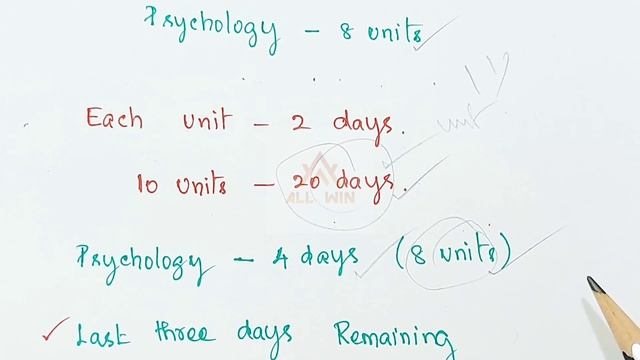 Psychology – 8 units
Each unit – 2 days.
10 units – 20 days.
ALL WIN
Psychology – 4 days (8 units)
Last three days Remaining